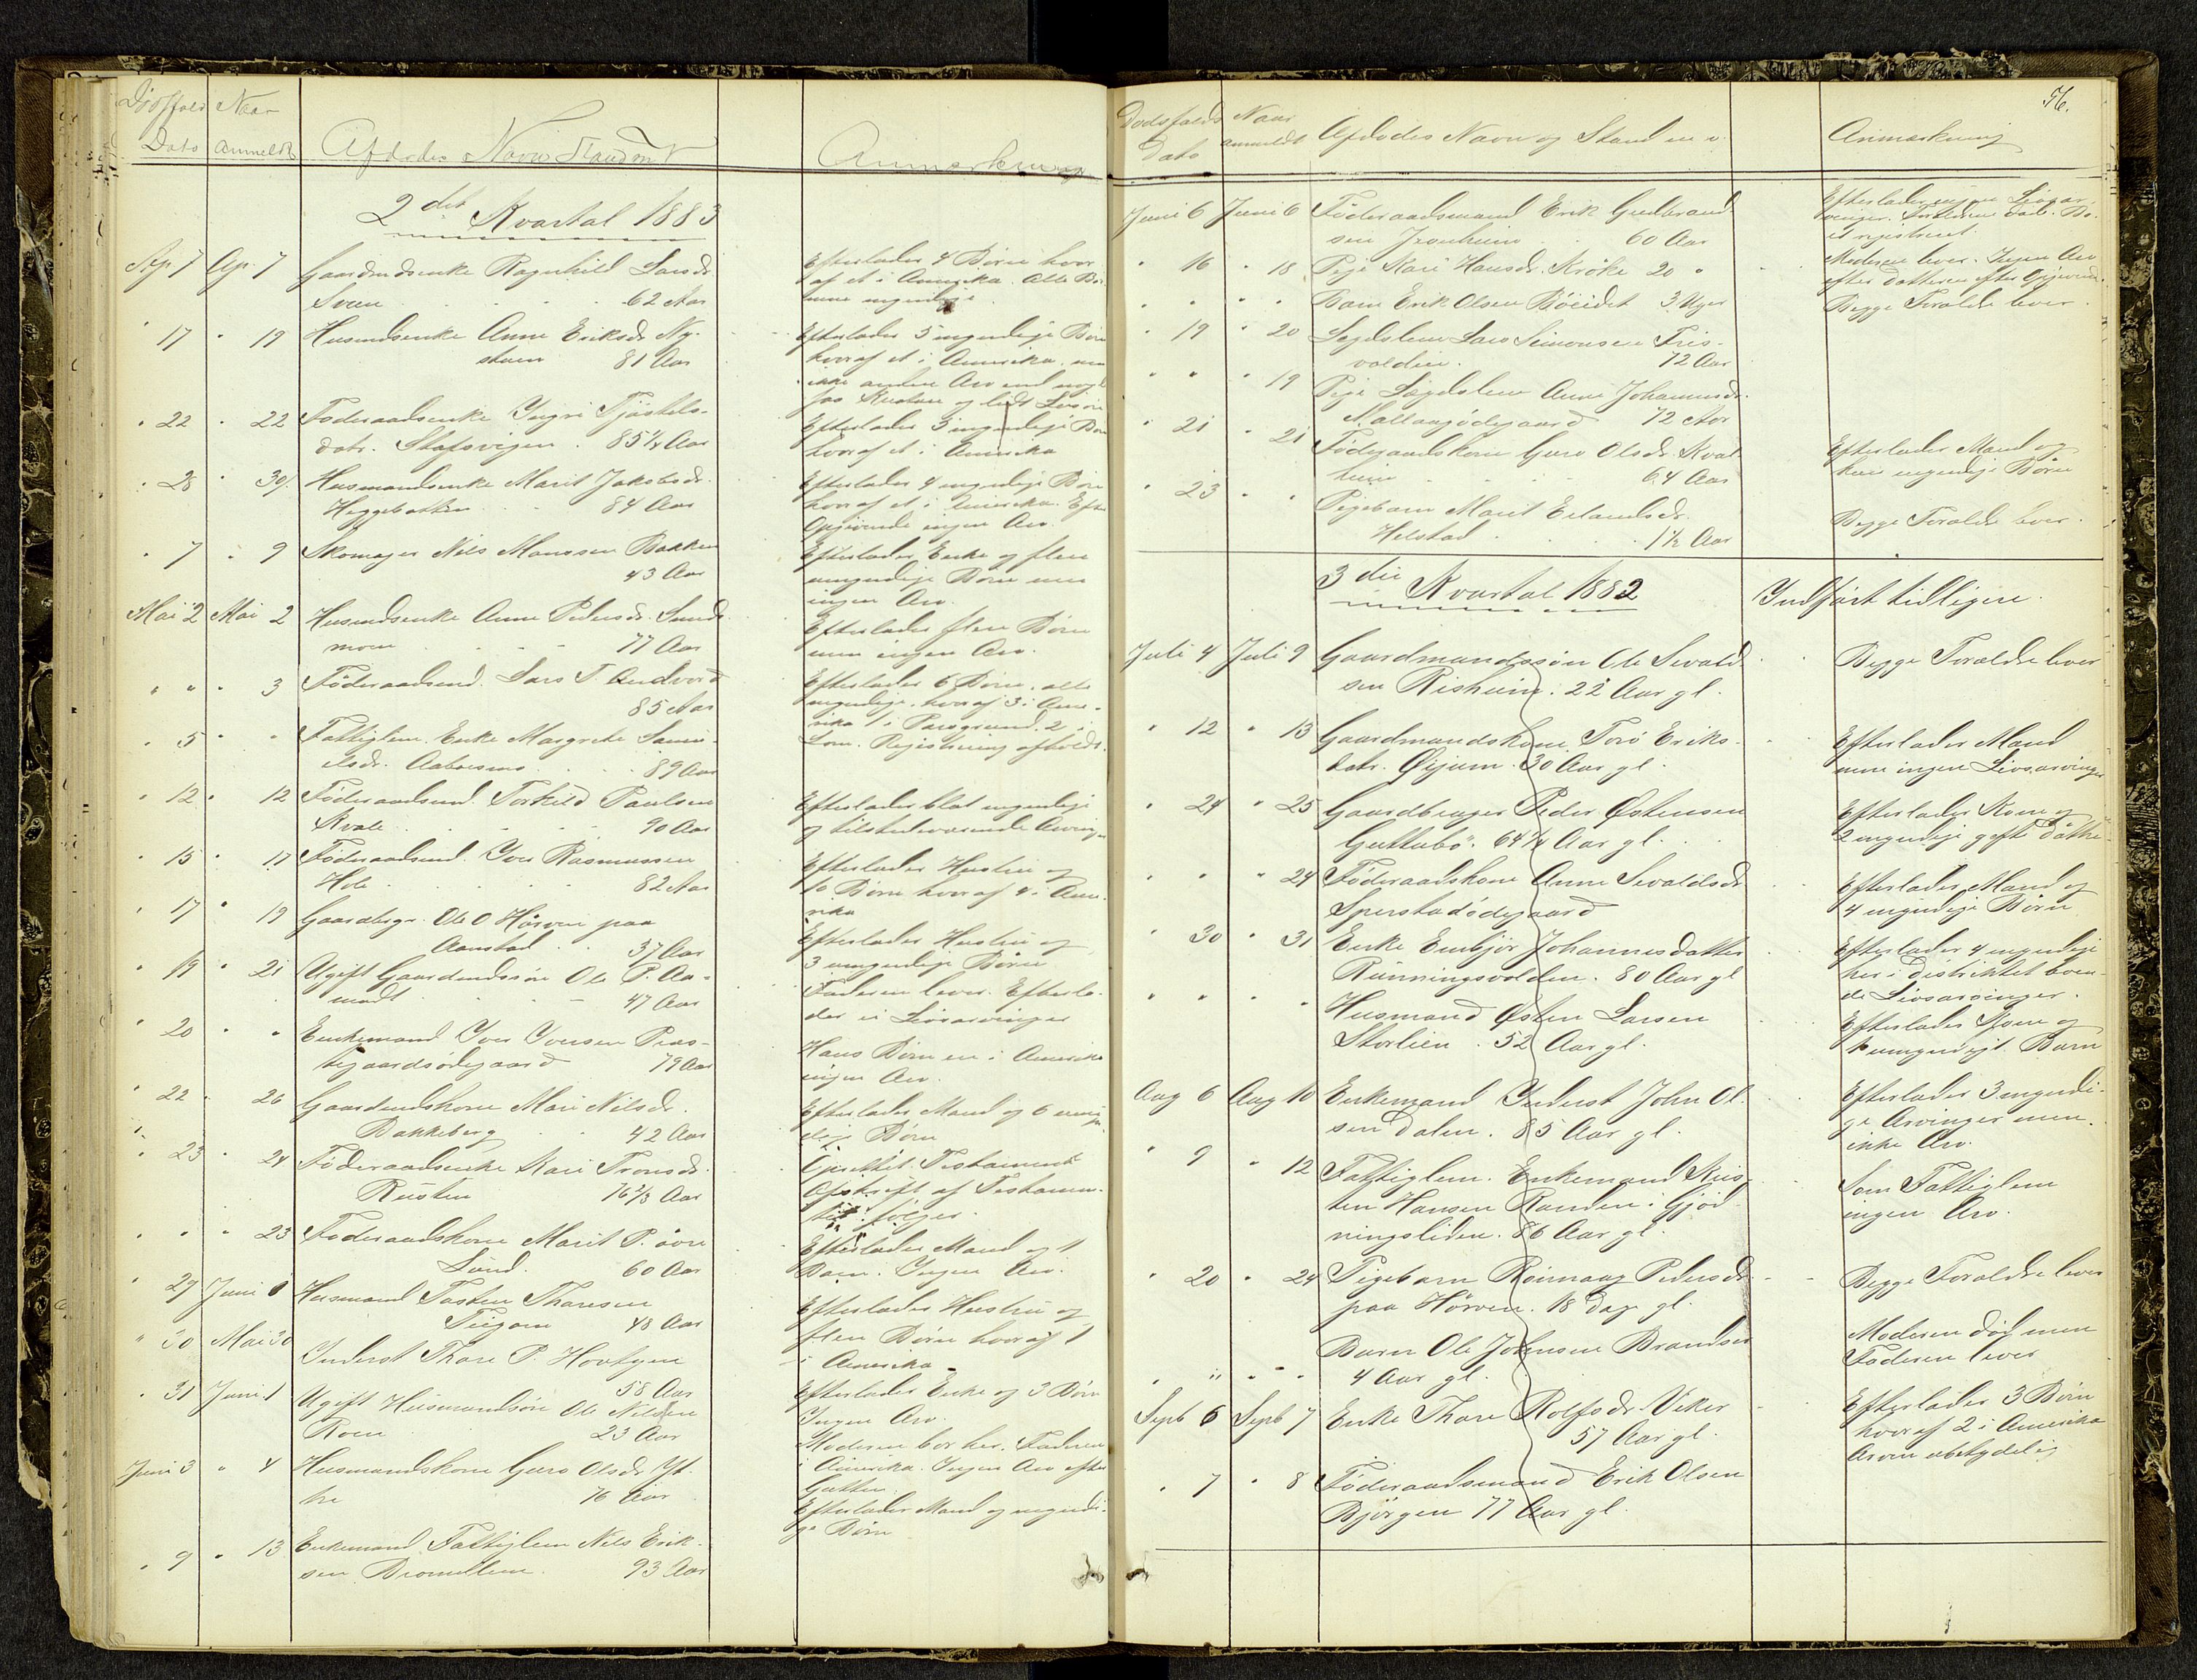 Dödsfald Naar
Dato Anmeldt Afdødes Navn Stand m v Anmerkning
2det Kvartal 1883
Ap. 7 Ap. 7 Gaardmdsenke Ragnhild Larsdr
62 Aar
Efterlader 4 Børn hvor
af et i Amerika. Alle Bør
nene myndige
17 " 19 Husmdsenke Anne Eriksdr Ny-
stuen 81 Aar
Efterlader 5 myndige Børn
hvoraf et i Amerika, men
ikke anden Arv end
22 " 22 Føderaadsenke Yngri
datr. Stafsvigen . 85¼ Aar
Efterlader 3 myndige Børn
hvoraf et i Amerika
28 " 30 Husmandsenke Marit Jakobsdr.
Heggebotten 84 Aar
Efterlader 4 myndige Børn
hvoraf et i Amerika. Efter
Opgivende ingen Arv.
" 7 " 9 Skomager Nils Hansen Bakken
43 Aar
Efterlader Enke og flere
umyndige Børn men
ingen Arv.
Mai 2 Mai 2 Husmdsenke Anne Pedersdr. Sund-
moen 77 Aar
Efterlader flere Børn
men ingen Arv.
" " " 3 Föderaadsmd. Lars T. Andvord
85 Aar
Efterlader 6 Børn, alle
myndige, hvoraf 3 i Ame-
rika 1 i Porsgrund. 2 i
Lom. Registrering afholdt.
" 5 " " Fattiglem. Enke Margrete Samu-
elsdr. 89 Aar
" 12 " 12 Föderaadsmd. Torkild Paulsen
Kvale 90 Aar
Efterlader blot myndige
og tilstedeværende Arvinger
" 15 " 17 Föderaadsmd. Iver Rasmussen
Hole 82 Aar
Efterlader Hustru og
10 Børn hvoraf 4 i Ame-
rika
" 17 " 19 Gaardbrgr. Ole O Hörven paa
Aanstad 37 Aar
Efterlader Hustru og
3 umyndige Børn
" 19 " 21 Ugift Gaardmdssön Ole P. Aa-
modt 47 Aar
Faderen lever. Efterla-
der ei Livsarvinger
" 20 " " Enkemand Iver Iversen Præs-
tegaardsödegaard 79 Aar
Hans Børn er i Amerika
ingen Arv.
" 22 " 26 Gaardmdskone Mari Nilsdr.
Bakkeberg 42 Aar
Efterlader Mand og 6 umyn-
dige Børn
" 23 " 24 Föderaadsenke Kari Tronsdr.
Rusten 76⅔ Aar
Oprettet Testament
Afskrift af Testamen-
tet følger.
" " " 23 Føderaadskone Marit P. övre
Sund. 60 Aar
Efterlader Mand og 1
Barn. Ingen Arv.
" 29 Juni 1 Husmand Tosten Thoresen
48 Aar
Efterlader Hustru og
flere Børn hvoraf 1
i Amerika
" 30 Mai 30 Inderst Thore P. Hovtygen
58 Aar
Efterlader Enke og 3 Børn
Ingen Arv.
" 31 Juni 1 Ugift Husmandssön Ole Nilsen
Roen 23 Aar
Moderen bor her. Faderen
i Amerika. Ingen Arv efter
Gutten
Juni 3 " 4 Husmandskone Guro Olsdr. Yt-
tre 76 Aar
Efterlader Mand og myndi-
ge Børn
" 9 " 13 Enkemand Fattiglem Nils Erik-
sen 93 Aar
56.
Dødsfalds Naar
Dato anmeldt Afdødes Navn og Stand m v. Anmærkning
Juni 6 Juni 6 Föderaadsmand Erik Gulbrand
sen 60 Aar
Efterlader Livsar-
vinger.
et registreret.
" 16 " 18 Pige Kari Hansdr. Kröke 20 "
Moderen lever. Ingen Arv
efter datteren efter Opgivend.
" " " " Barn Erik Olsen Böeidet 3 Uger
Begge Forældre lever.
" 19 " 20 Lægdslem Lars Simonsen Fris-
volden. 72 Aar
" " " 19 Pige Lægdslem Anne Johannesdr.
72 Aar
" 21 " 21 Föderaadskone Guro Olsdr. Kvat-
64 Aar
Efterlader Mand og
kun myndige Börn
" 23 " " Pigebarn Marit Erlandsdr.
Helstad 1½ Aar
Begge Forældre lever.
3die Kvartal 1882 Indfört tidligere.
Juli 4 Juli 9 Gaardmandssön Ole Sivald-
sen Risheim. 22 Aar gl.
Begge Forældre lever
" 12 " 13 Gaardmandskone Torö Eriks-
datr. Öijum. 30 Aar gl.
Efterlader Mand
men ingen Livsarvinger
" 24 " 25 Gaardbruger Peder Østensen
Guttubö. 64¼ Aar gl.
Efterlader Kone og
2 myndige gifte Døttre
" " " 24 Föderaadskone Anne Sivaldsdr
Sperstadödegaard
Efterlader Mand og
4 myndige Børn
" 30 " 31 Enke Embjör Johannesdatter
Runningsvolden. 80 Aar gl
Efterlader 4 myndige
her i Distriktet boen-
de Livsarvinger.
" " " " Husmand Østen Larsen
Storlien . 52 Aar gl.
Efterlader Kone og
1 umyndigt Barn
Aug 6 Aug 10 Enkemand Inderst John Ol-
sen Dalen. 85 Aar gl.
Efterlader 3 myndi-
ge Arvinger men
ikke Arv.
" 9 " 12 Fattiglem. Enkemand Kris-
ten Hansen Randen i Gjöd-
ningsliden. 86 Aar gl.
Som Fattiglem
ingen Arv.
" 20 " 24 Pigebarn Rönnaug Pedersdr
paa Hörven. 18 Dage gl.
Begge Forældre lever
" " " " Barn Ole Johnsen Brandser
4 Aar gl.
Moderen död men
Faderen lever
Sept 6 Sept 7 Enke Thore Rolfsdr. Veker
57 Aar gl.
Efterlader 3 Börn
hvoraf 2 i Amerika
Arven ubetydelig
" 7 " 8 Föderaadsmand Erik Olsen
Bjørgen 77 Aar gl.